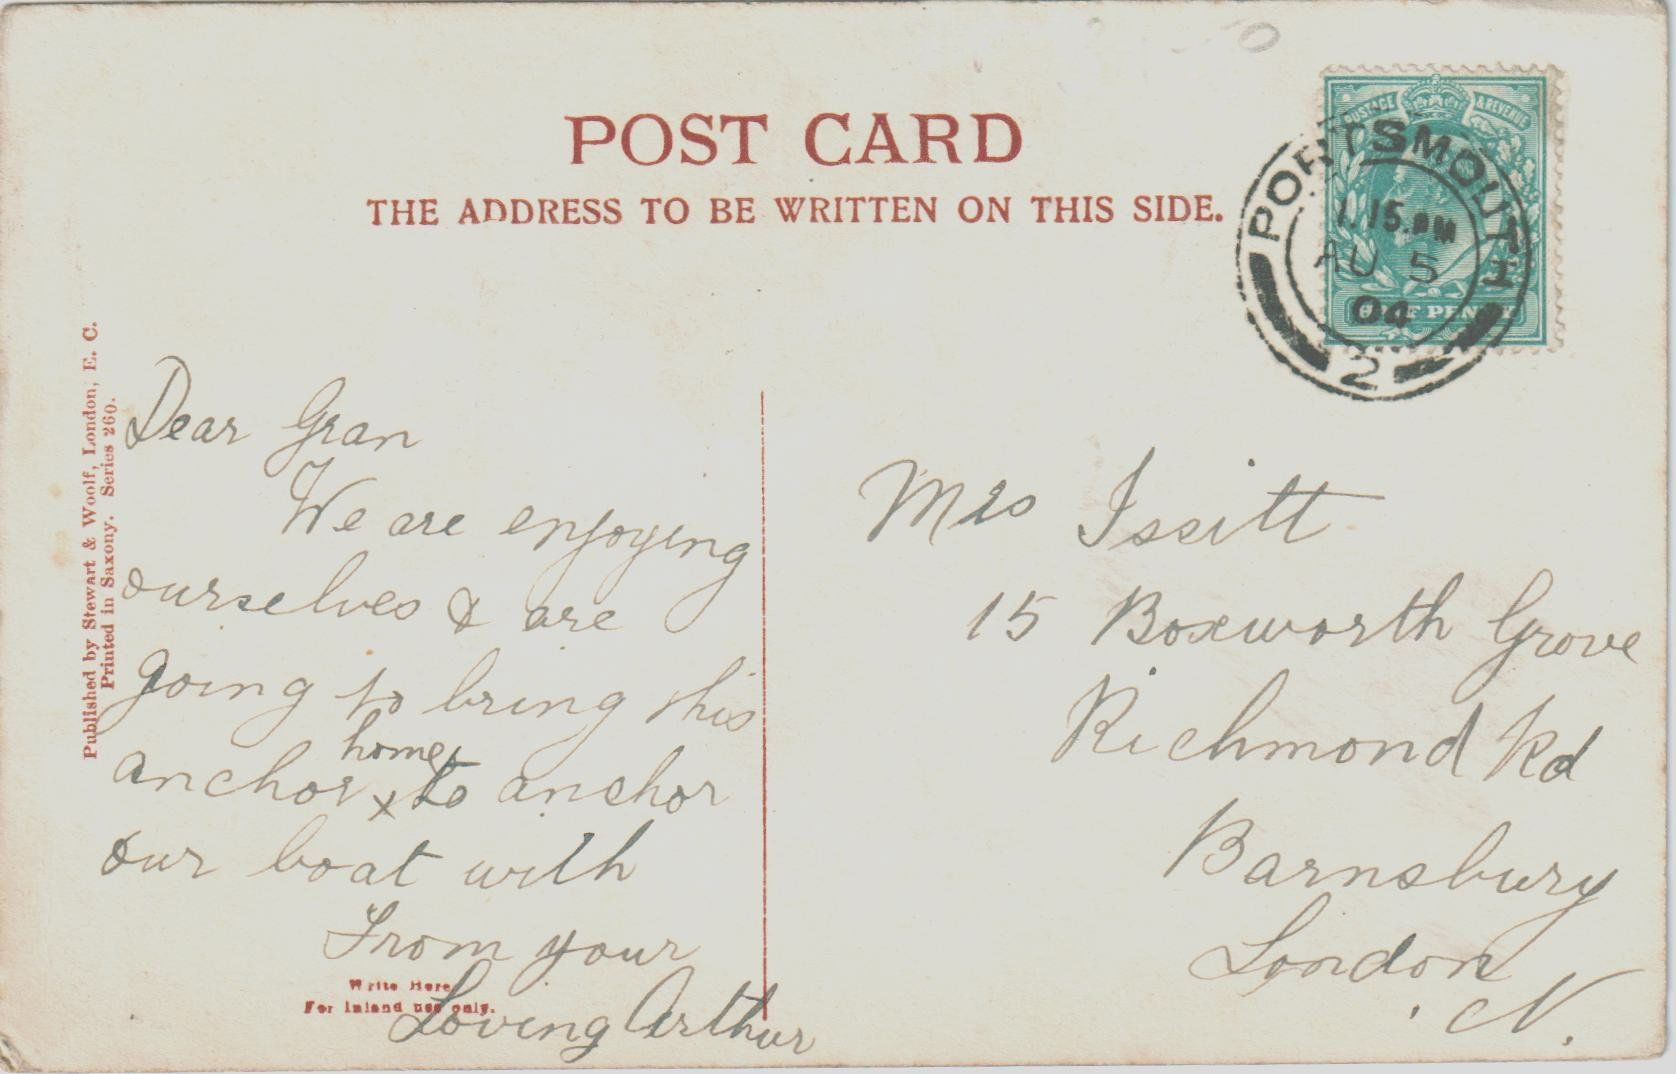 POST CARD
THE ADDRESS TO BE WRITTEN ON THIS SIDE.
POSTAGE & REVENUE
PORTSMOUTH
1.15.PM
AU 5
04
HALF PENNY
2
Published by Stewart & Woolf, London, E. C.
Printed in Saxony. Series 260.
Dear Gran
We are enjoying
ourselves & are
going to bring this
home
anchor x to anchor
our boat with
From your
Loving Arthur
Write Here
For Inland use only.
Mrs Issitt
15 Boxworth Grove
Richmond Rd
Barnsbury
London
N.